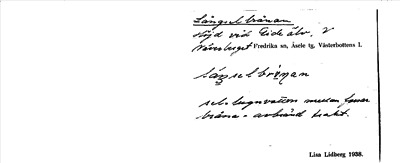 Långselbrånan
höjd vid Gideälv. V
Fredrika sn, Åsele tg, Västerbottens l.
sel- lugnvatten mellan forsar
bråna = avbränd trakt.
Lisa Lidberg 1938.